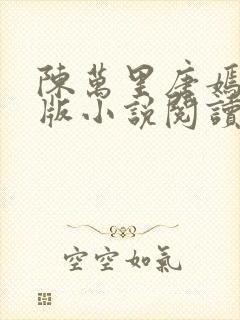 陳萬里唐嫣
版小說閱讀
空空如氣